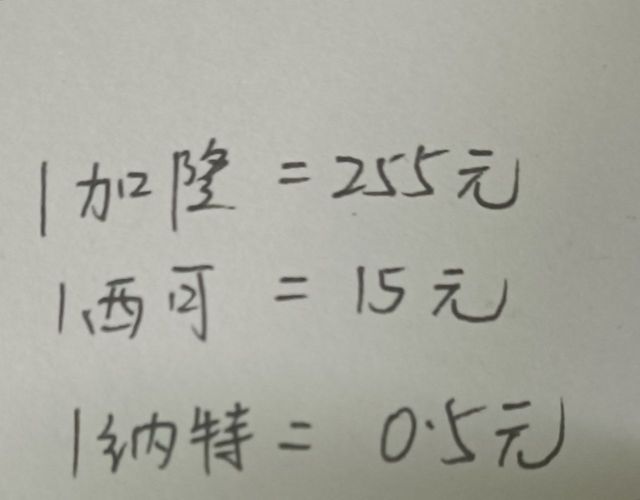 1加隆=255元
1西可=15元
1纳特=0.5元